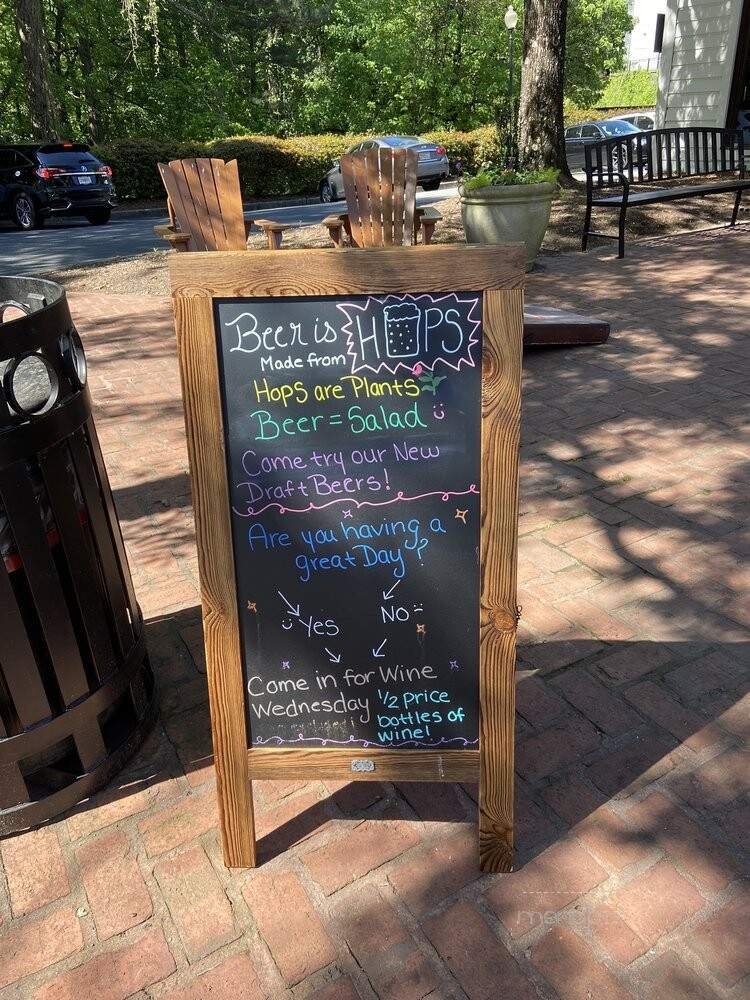 Beer is HOPS
Made from
Hops are Plants
Beer = Salad
Come try our New
Draft Beers!
Are you having a
great Day?
Yes
No
Come in for Wine
Wednesday
1/2 price
bottles of
wine!